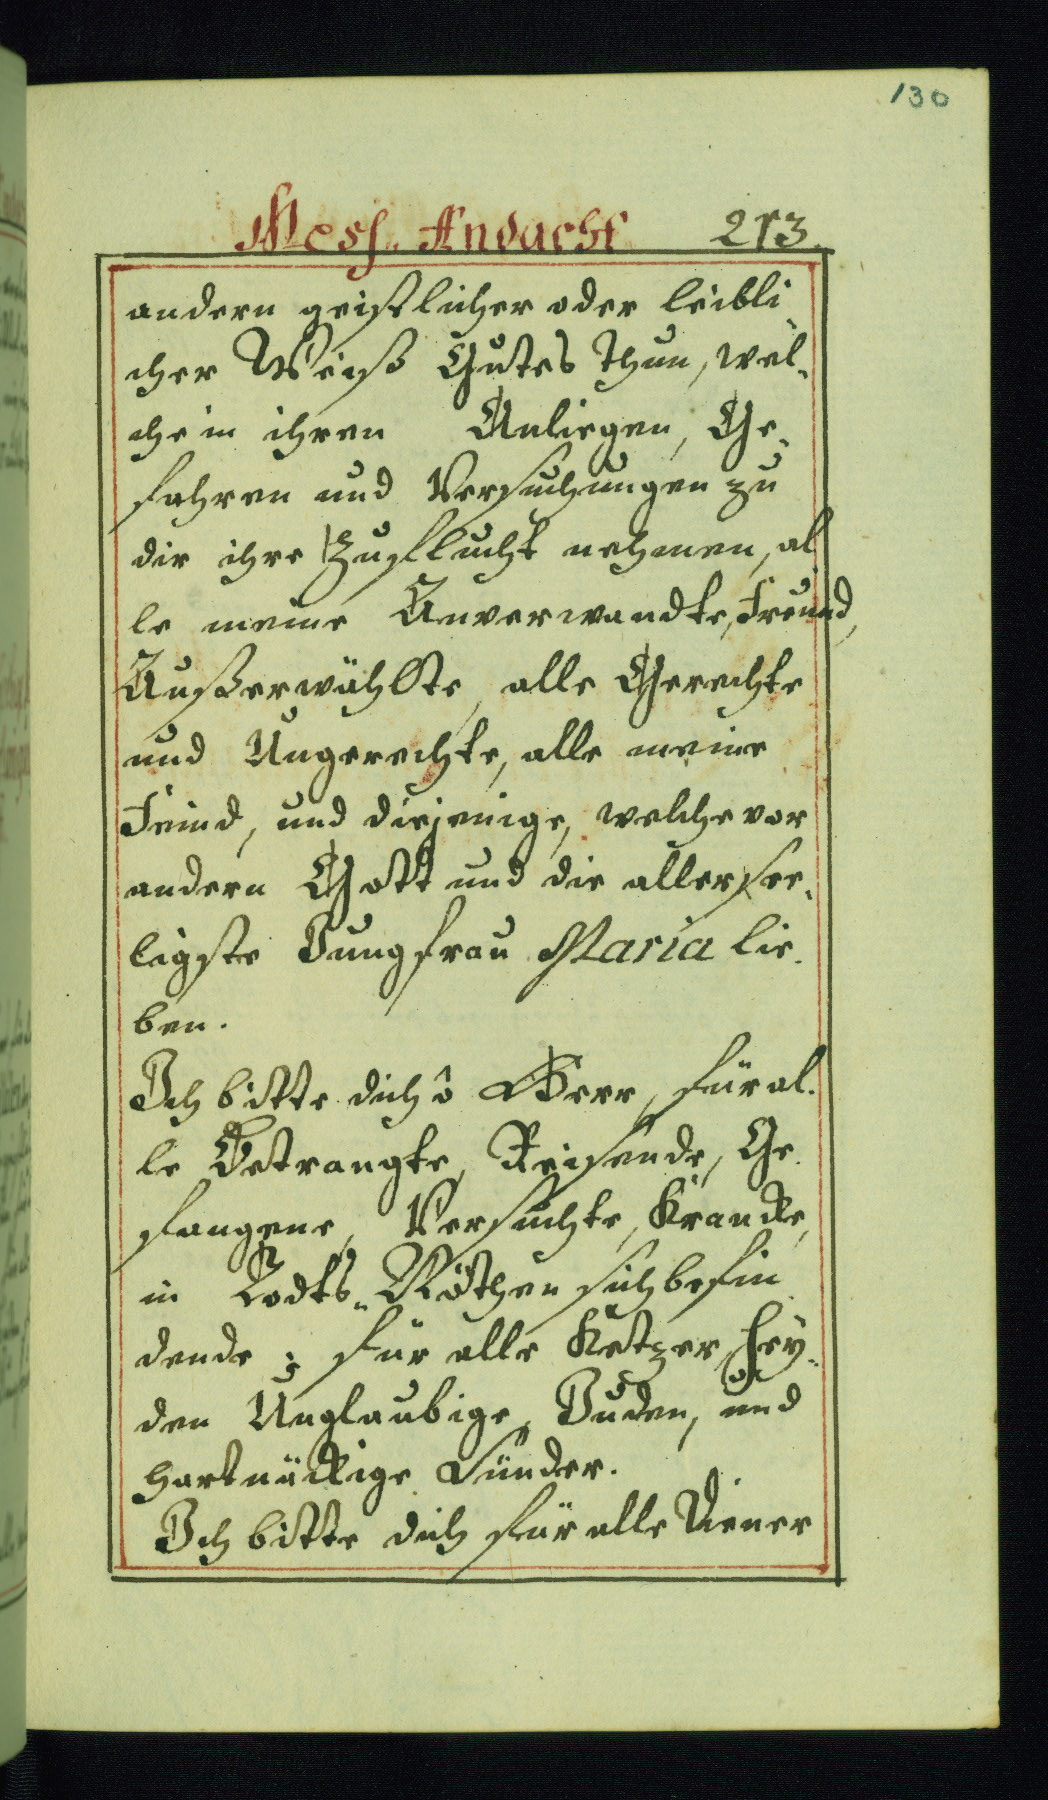 130
Mess. Andacht 213.
andern geistlicher oder leibli
cher Weiß Gutes thun, wel,
che in ihren Anliegen, Ge,
fahren und Versuchungen zu
dir ihre Zuflucht nehmen, al
le meine Anverwandte, Freund,
Außerwählte, alle Gerechte
und Ungerechte, alle meine
Feind, und diejenige, welche vor
andern Gott und die allersee,
ligste Jungfrau Maria lie,
ben.
Ich bitte dich ô Herr, für al,
le Betrangte, Reisende, Ge,
fangene, Versuchte, Krancke,
in Todts-Nöthen sich befin
dende; für alle Ketzer, Hey,
den Unglaubige, Juden, und
hartnäckige Sünder.
Ich bitte dich für alle Diener